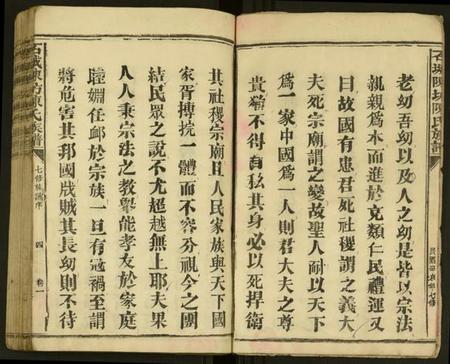 石城陳坊陳氏族譜
老幼吾幼以及人之幼是皆以宗法
親親為本而進於克類仁民禮運又
曰故國有患君死社稷謂之義大
夫死宗廟謂之變故聖人耐以天下
為一家中國為一人則君大夫之尊
貴猶不得自私其身必以死捍衛
其社稷宗廟且人民家族與天下國
家胥摶捖一體而不容分視今之團
結民眾之說不尤超越無上耶夫果
人人秉宗法之教舉能孝友於家庭
睦婣任卹於宗族一旦有冦禍至謂
將危害其邦國戕賊其長幼則不待
石城陳坊陳氏族譜
七修族譜序
四
卷一